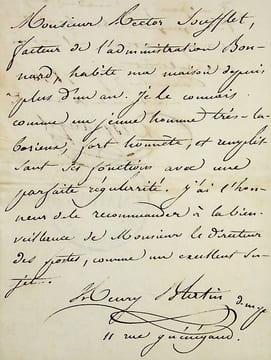 Monsieur Hector Soufflet,
facteur de l'administration Bon-
nard, habite ma maison depuis
plus d'un an. Je le connais
comme un jeune homme très-la-
borieux, fort honnête, et remplis-
sant ses fonctions avec une
parfaite régularité. J'ai l'hon-
neur de le recommander à la bien-
veillance de Monsieur le directeur
des postes, comme un excellent su-
jet.
Henry Blatin
11 rue guénégaud.